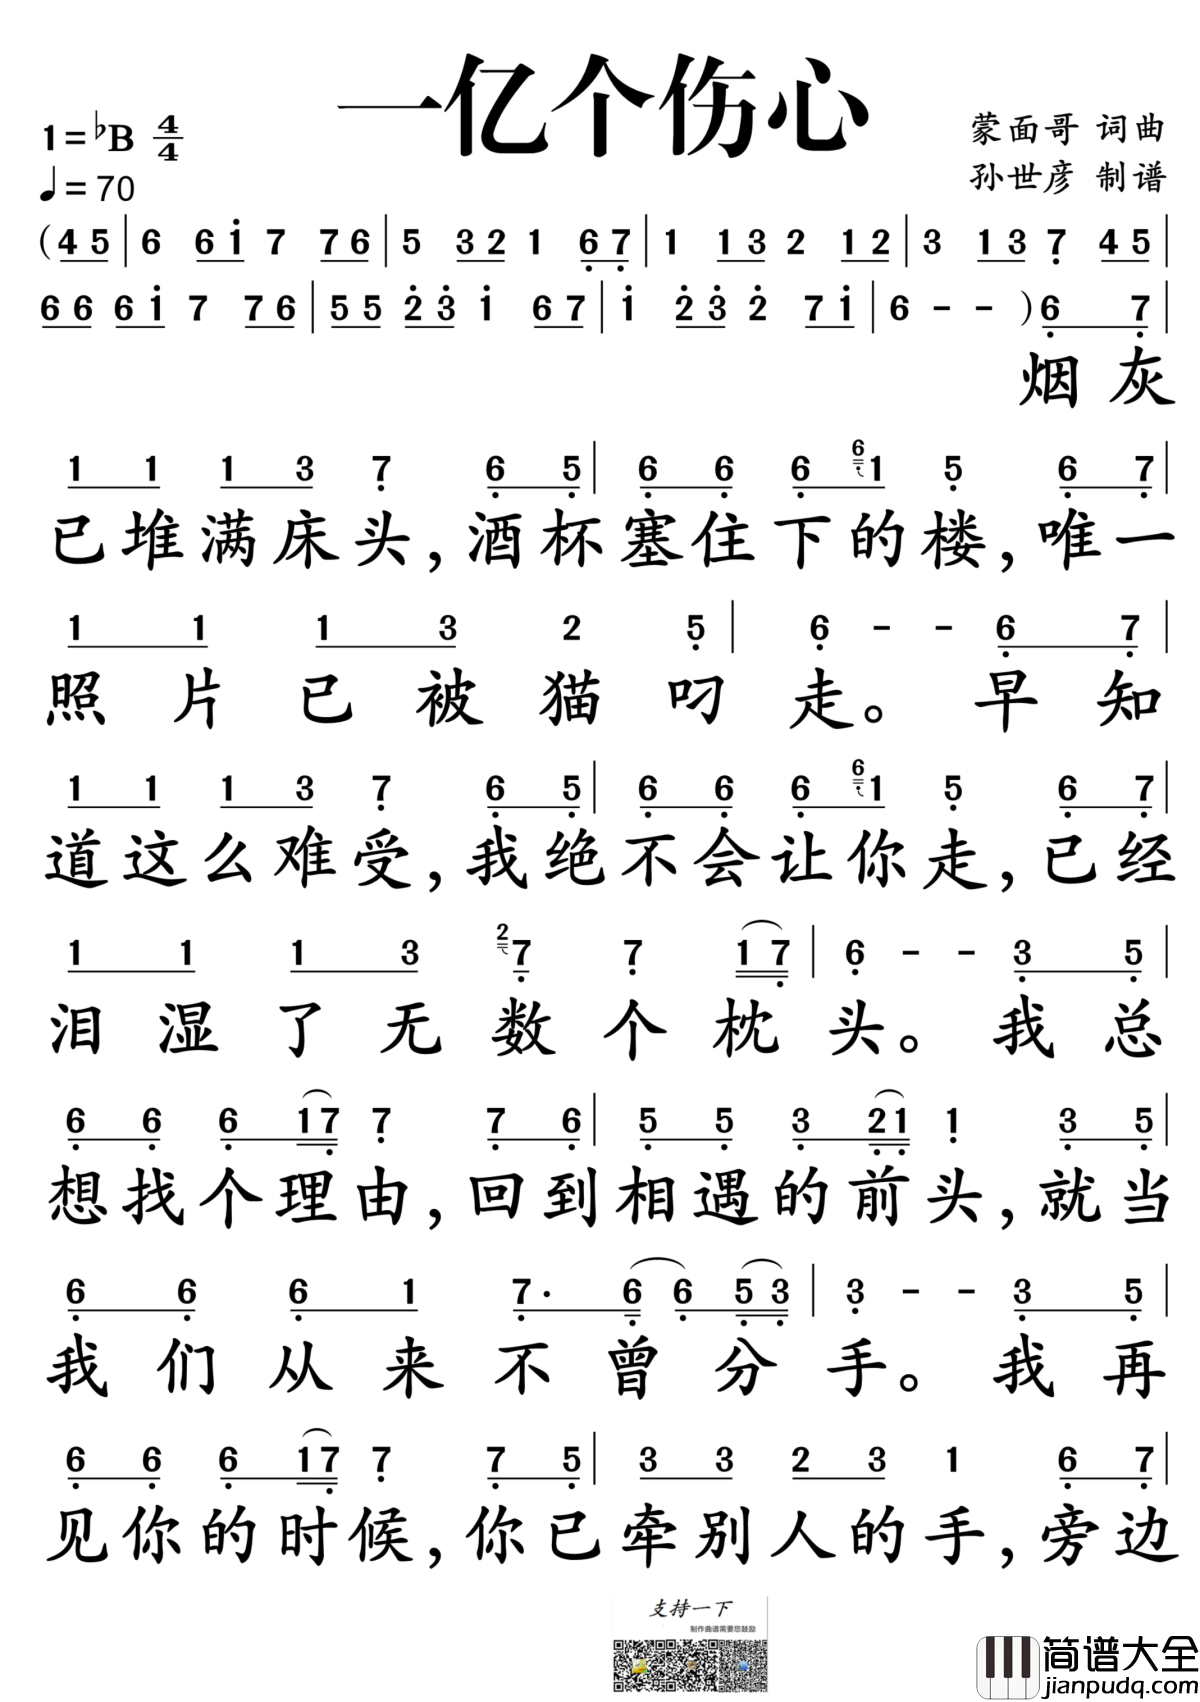 一亿个伤心
1=♭B 4/4
♩=70
蒙面哥 词曲
孙世彦 制谱
(4 5 | 6 6 i 7 7 6 | 5 3 2 1 6̣ 7̣ | 1 1 3 2 1 2 | 3 1 3 7̣ 4 5 |
6 6 6 i 7 7 6 | 5 5 2̇ 3̇ i 6 7 | i 2̇ 3̇ 2̇ 7 i | 6 - - ) 6̣ 7̣ |
烟灰
1 1 1 3 7̣ 6̣ 5̣ | 6̣ 6̣ 6̣ 6̣ 1 5̣ 6̣ 7̣ |
已堆满床头,酒杯塞住下的楼,唯一
1 1 1 3 2 5̣ | 6̣ - - 6̣ 7̣ |
照片已被猫叼走。早知
1 1 1 3 7̣ 6̣ 5̣ | 6̣ 6̣ 6̣ 6̣ 1 5̣ 6̣ 7̣ |
道这么难受,我绝不会让你走,已经
1 1 1 3 2 7̣ 7̣ 1 7̣ | 6̣ - - 3̣ 5̣ |
泪湿了无数个枕头。我总
6̣ 6̣ 6̣ 1 7̣ 7̣ 7̣ 6̣ | 5̣ 5̣ 3̣ 2̣ 1̣ 1̣ 3̣ 5̣ |
想找个理由,回到相遇的前头,就当
6̣ 6̣ 6̣ 1 7̣. 6̣ 6̣ 5̣ 3̣ | 3̣ - - 3̣ 5̣ |
我们从来不曾分手。我再
6̣ 6̣ 6̣ 1 7̣ 7̣ 7̣ 5̣ | 3 3 2 3 1 6̣ 7̣ |
见你的时候,你已牵别人的手,旁边
支持一下
制作曲谱需要您鼓励
简谱大全
jianpudq.com